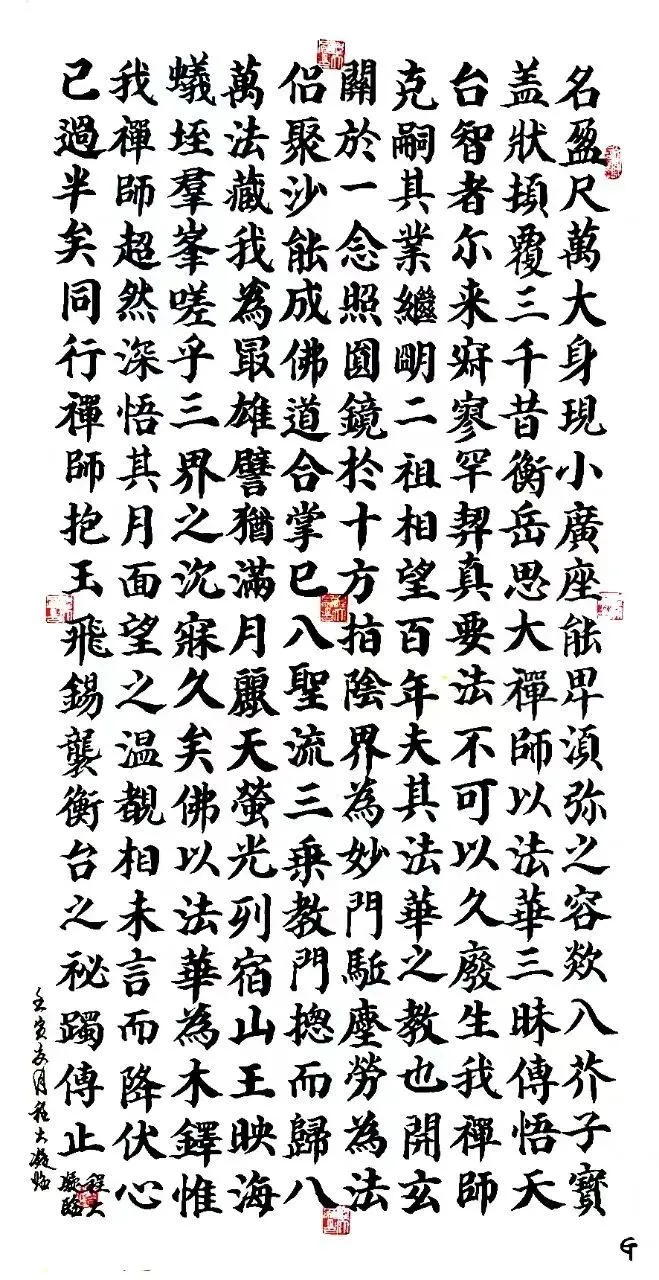 名盈尺萬大身現小廣座能卑湏弥之容欻入芥子寶
盖狀頃覆三千昔衡岳思大禪師以法華三昧傳悟天
台智者尔来寂寥罕契真要法不可以久廢生我禪師
克嗣其業繼明二祖相望百年夫其法華之教也開玄
關於一念照圓鏡於十方指陰界為妙門駈塵勞為法
侶聚沙能成佛道合掌已入聖流三乗教門揔而歸八
萬法藏我為冣雄譬猶滿月麗天螢光列宿山王映海
蟻垤羣峯嗟乎三界之沉寐久矣佛以法華為木鐸惟
我禪師超然深悟其月面望之温覩相未言而降伏心
已過半矣同行禪師抱玉飛錫襲衡台之祕躅傳止
壬寅月程大凝臨
G